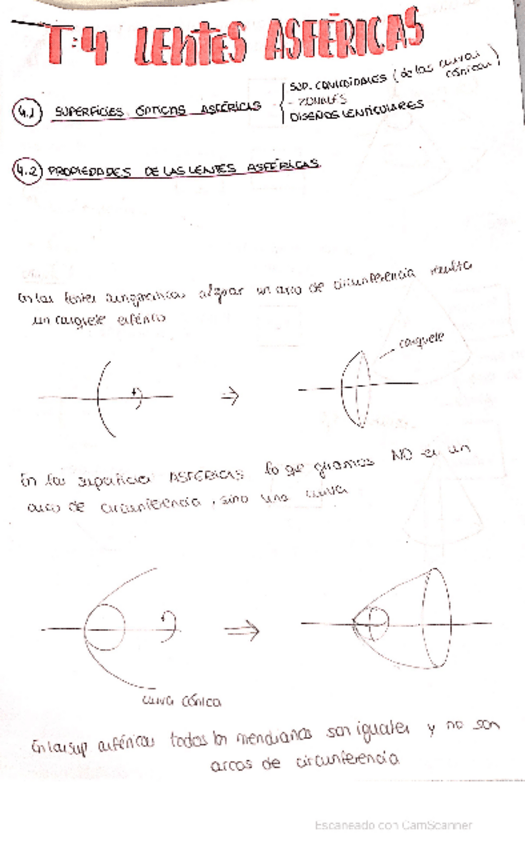 T:4 LENTES ASFÉRICAS
4.1 SUPERFICIES ÓPTICAS ASFÉRICAS
SUP. CONICOIDALES (de las curvas cónicas)
- ZONALES
DISEÑOS LENTICULARES
4.2 PROPIEDADES DE LAS LENTES ASFÉRICAS.
En las lentes al girar un arco de circunferencia resulta
un casquete esférico
casquete
En las superficies ASFÉRICAS lo que giramos NO es un
arco de circunferencia, sino una curva
curva cónica
En las sup asféricas todos los meridianos son iguales y no son
arcos de circunferencia
Escaneado con CamScanner